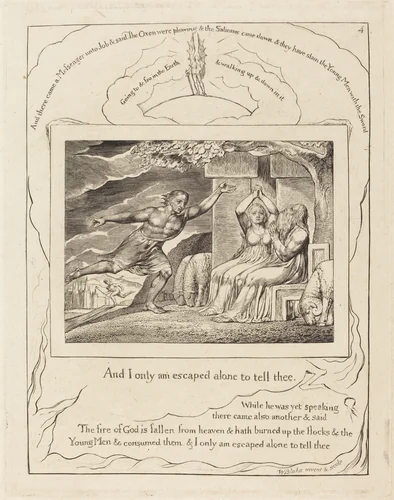 4
And there came a Messenger unto Job & said The Oxen were plowing & the Sabeans came down & they have slain the Young Men with the Sword
Going to & fro in the Earth & walking up & down in it
And I only am escaped alone to tell thee.
While he was yet speaking
there came also another & said
The fire of God is fallen from heaven & hath burned up the flocks & the
Young Men & consumed them & I only am escaped alone to tell thee
WBlake invent & sculp